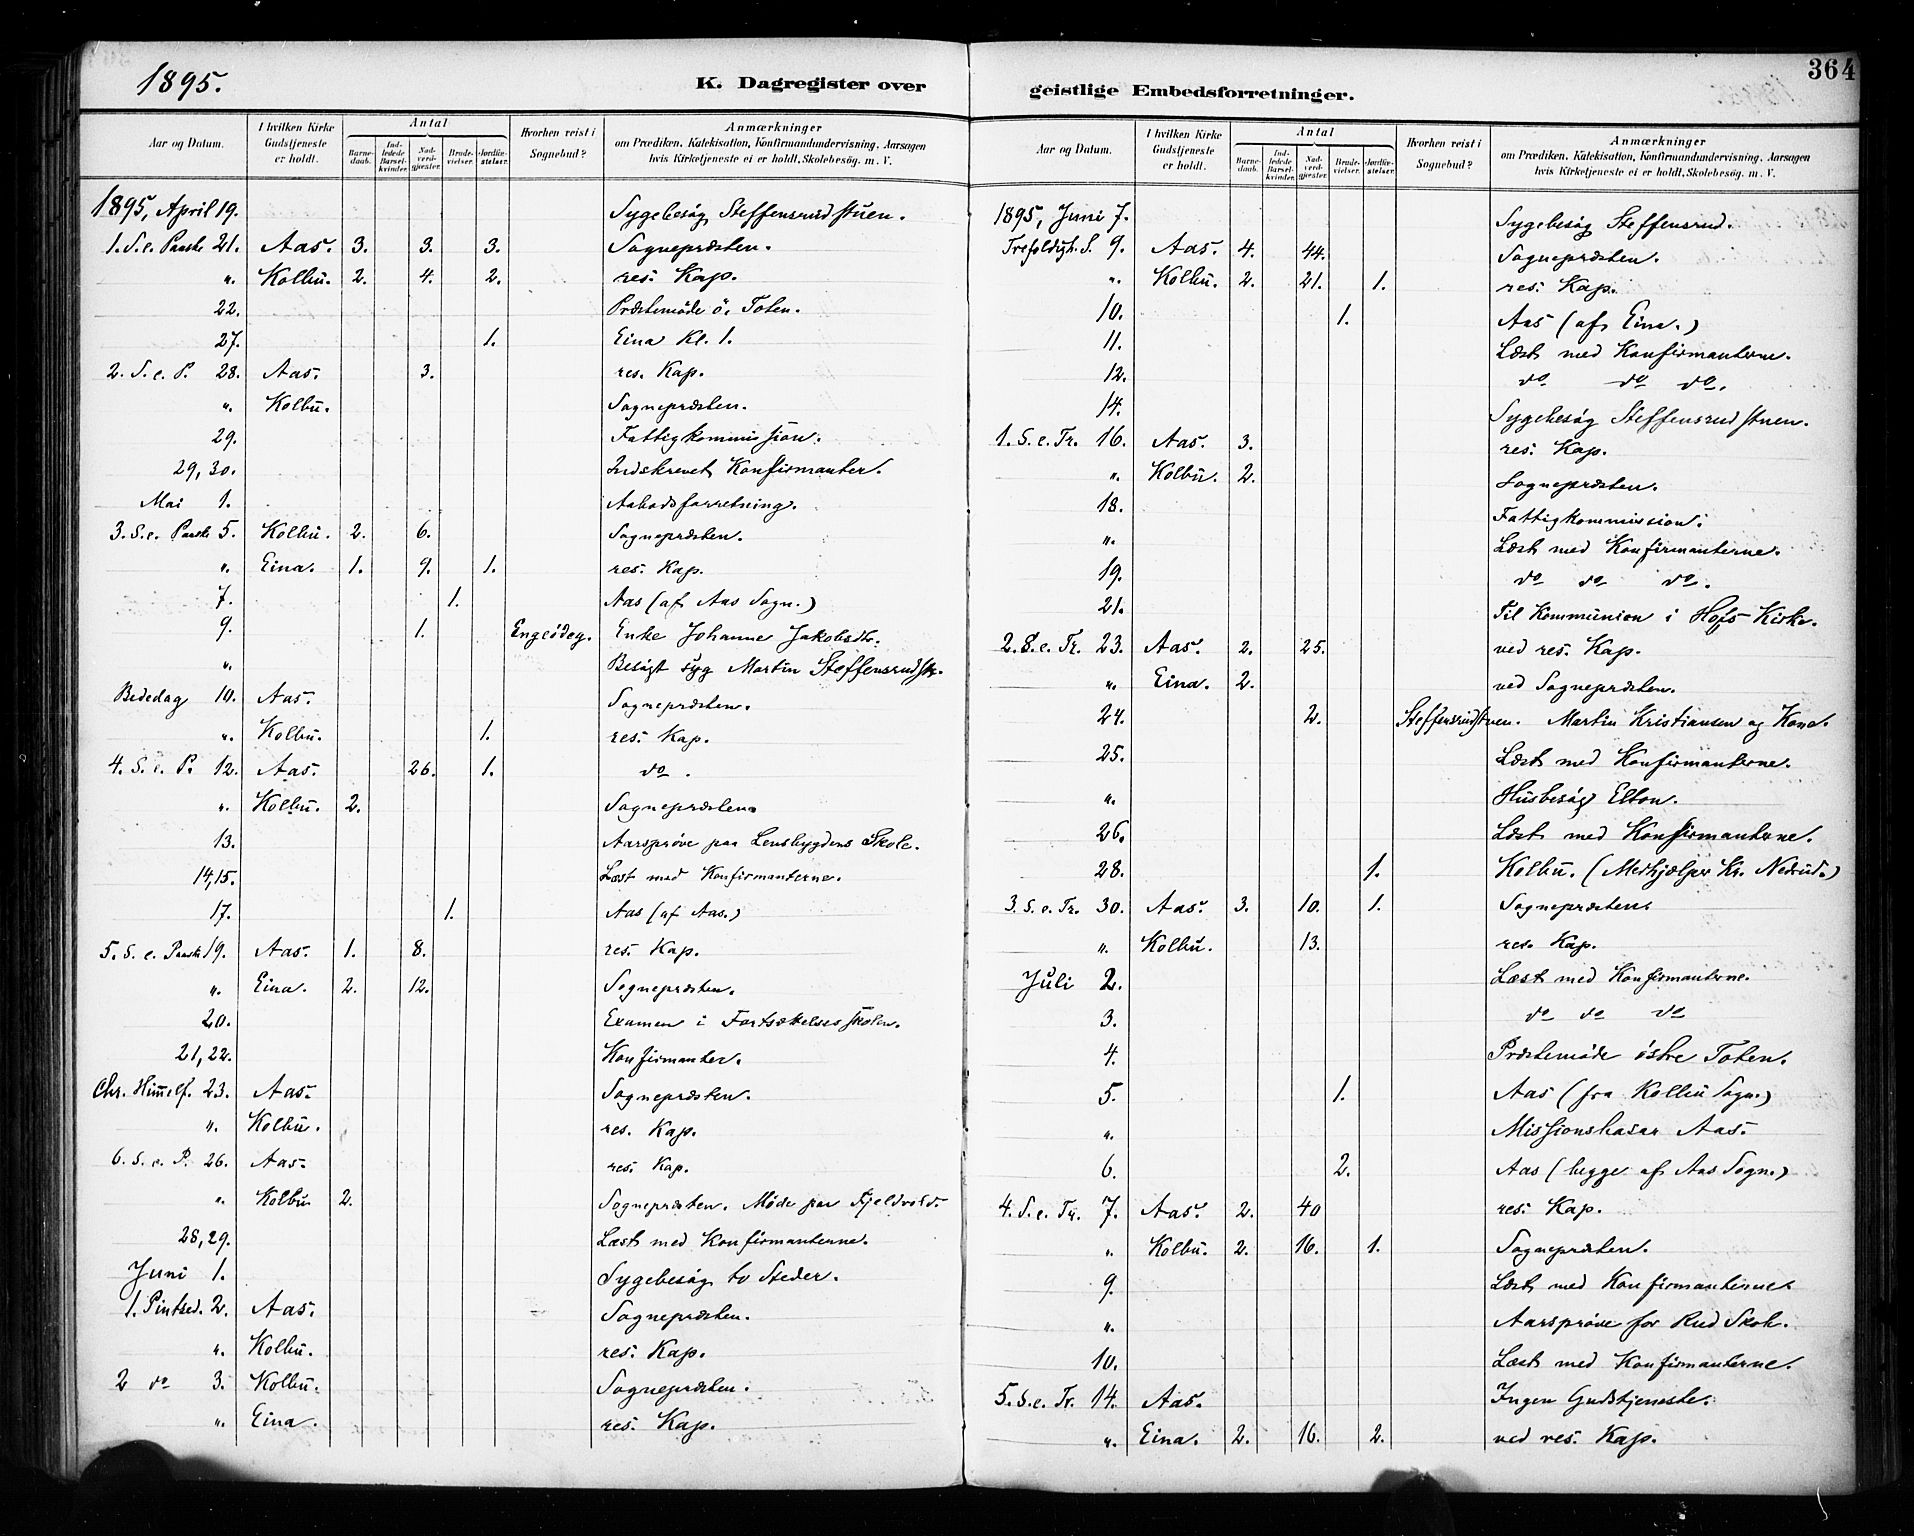 1895.
K. Dagregister over
Aar og Datum. | I hvilken Kirke Gudstjeneste er holdt. | Antal | Barnedaab. | Indledede Barselkvinder. | Nadverdgjester. | Brudevielser. | Jordfæstelser. | Hvorhen reist i Sognebud? | Anmærkninger om Prædiken, Katekisation, Konfirmandundervisning, Aarsagen hvis Kirketjeneste ei er holdt, Skolebesøg m. V.
1895, April 19. Sygebesøg Steffensrudstuen.
1. S. e. Paaske 21. Aas. 3. 3. 3. Sognepræsten.
„ Kolbu. 2. 4. 2. res. Kap.
22. Præstemøde ö. Toten.
27. 1. Eina Kl. 1.
2. S. e. P. 28. Aas. 3. res. Kap.
„ Kolbu. Sognepræsten.
29. Fattigkommission.
29, 30. Indskrevet Konfirmanter.
Mai 1. Aabodsforretning.
3. S. e. Paaske 5. Kolbu. 2. 6. Sognepræsten.
„ Eina. 1. 9. 1. res. Kap.
7. 1. Aas (af Aas Sogn.)
9. 1. Engeödeg. Enke Johanne Jakobsdtr.
„ Besögt syg Martin Steffensrudst.
Bededag 10. Aas. Sognepræsten.
„ Kolbu. 1. res. Kap.
4. S. e. P. 12. Aas. 26. 1. do.
„ Kolbu. 2. Sognepræsten.
13. Aarsprøve paa Lensbygdens Skole.
14, 15. Læst med Konfirmanterne.
17. 1. Aas (af Aas.)
5. S. e. Paaske 19. Aas. 1. 8. res. Kap.
„ Eina. 2. 12. Sognepræsten.
20. Examen i Fortsættelsesskolen.
21, 22. Konfirmanter.
Chr. Himmelf. 23. Aas. Sognepræsten.
„ Kolbu. res. Kap.
6. S. e. P. 26. Aas. res. Kap.
„ Kolbu 2. Sognepræsten. Møde paa Fjeldvold.
28, 29. Læst med Konfirmanterne.
Juni 1. Sygebesøg to Steder.
1. Pintsed. 2. Aas. Sognepræsten.
„ Kolbu. res. Kap.
2 do 3. Kolbu. Sognepræsten.
„ Eina. res. Kap.
364
geistlige Embedsforretninger.
Aar og Datum. | I hvilken Kirke Gudstjeneste er holdt. | Antal | Barnedaab. | Indledede Barselkvinder. | Nadverdgjester. | Brudevielser. | Jordfæstelser. | Hvorhen reist i Sognebud? | Anmærkninger om Prædiken, Katekisation, Konfirmandundervisning, Aarsagen hvis Kirketjeneste ei er holdt, Skolebesøg m. V.
1895, Juni 7. Sygebesøg Steffensrud.
Trefoldigh. S. 9. Aas. 4. 44. Sognepræsten.
„ Kolbu. 2. 21. 1. res. Kap.
10. 1. Aas (af Eina.)
11. Læst med Konfirmanterne.
12. do do do.
14. Sygebesøg Steffensrudstuen.
1. S. e. Tr. 16. Aas. 3. res. Kap.
„ Kolbu. 2. Sognepræsten.
18. Fattigkommission.
„ Læst med Konfirmanterne.
19. do do do.
21. Til Kommunion i Hofs Kirke.
2. S. e. Tr. 23. Aas. 2. 25. ved res. Kap.
„ Eina. 2. ved Sognepræsten.
24. 2. Steffensrudstuen. Martin Kristiansen og Kone.
25. Læst med Konfirmanterne.
„ Husbesøg Elton.
26. Læst med Konfirmanterne.
28. 1. Kolbu. (Medhjælper Kr. Nedrud.)
3. S. e. Tr. 30. Aas. 3. 10. 1. Sognepræsten.
„ Kolbu. 13. res. Kap.
Juli 2. Læst med Konfirmanterne.
3. do do do
4. Præstemøde östre Toten.
5. 1. Aas (fra Kolbu Sogn.)
„ Missionsbasar Aas.
6. 2. Aas (begge af Aas Sogn.)
4. S. e. Tr. 7. Aas. 2. 40 res. Kap.
„ Kolbu. 2. 16. 1. Sognepræsten.
9. Læst med Konfirmanterne.
„ Aarsprøve for Rud Skole.
10. Læst med Konfirmanterne.
5. S. e. Tr. 14. Aas. Ingen Gudstjeneste.
„ Eina. 2. 16. 2. ved res. Kap.